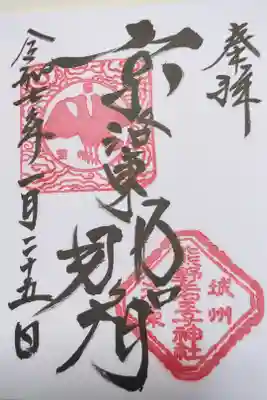 奉拝
京洛東
那智
令和七年二月二十五日
城州
熊野若王子神社
東